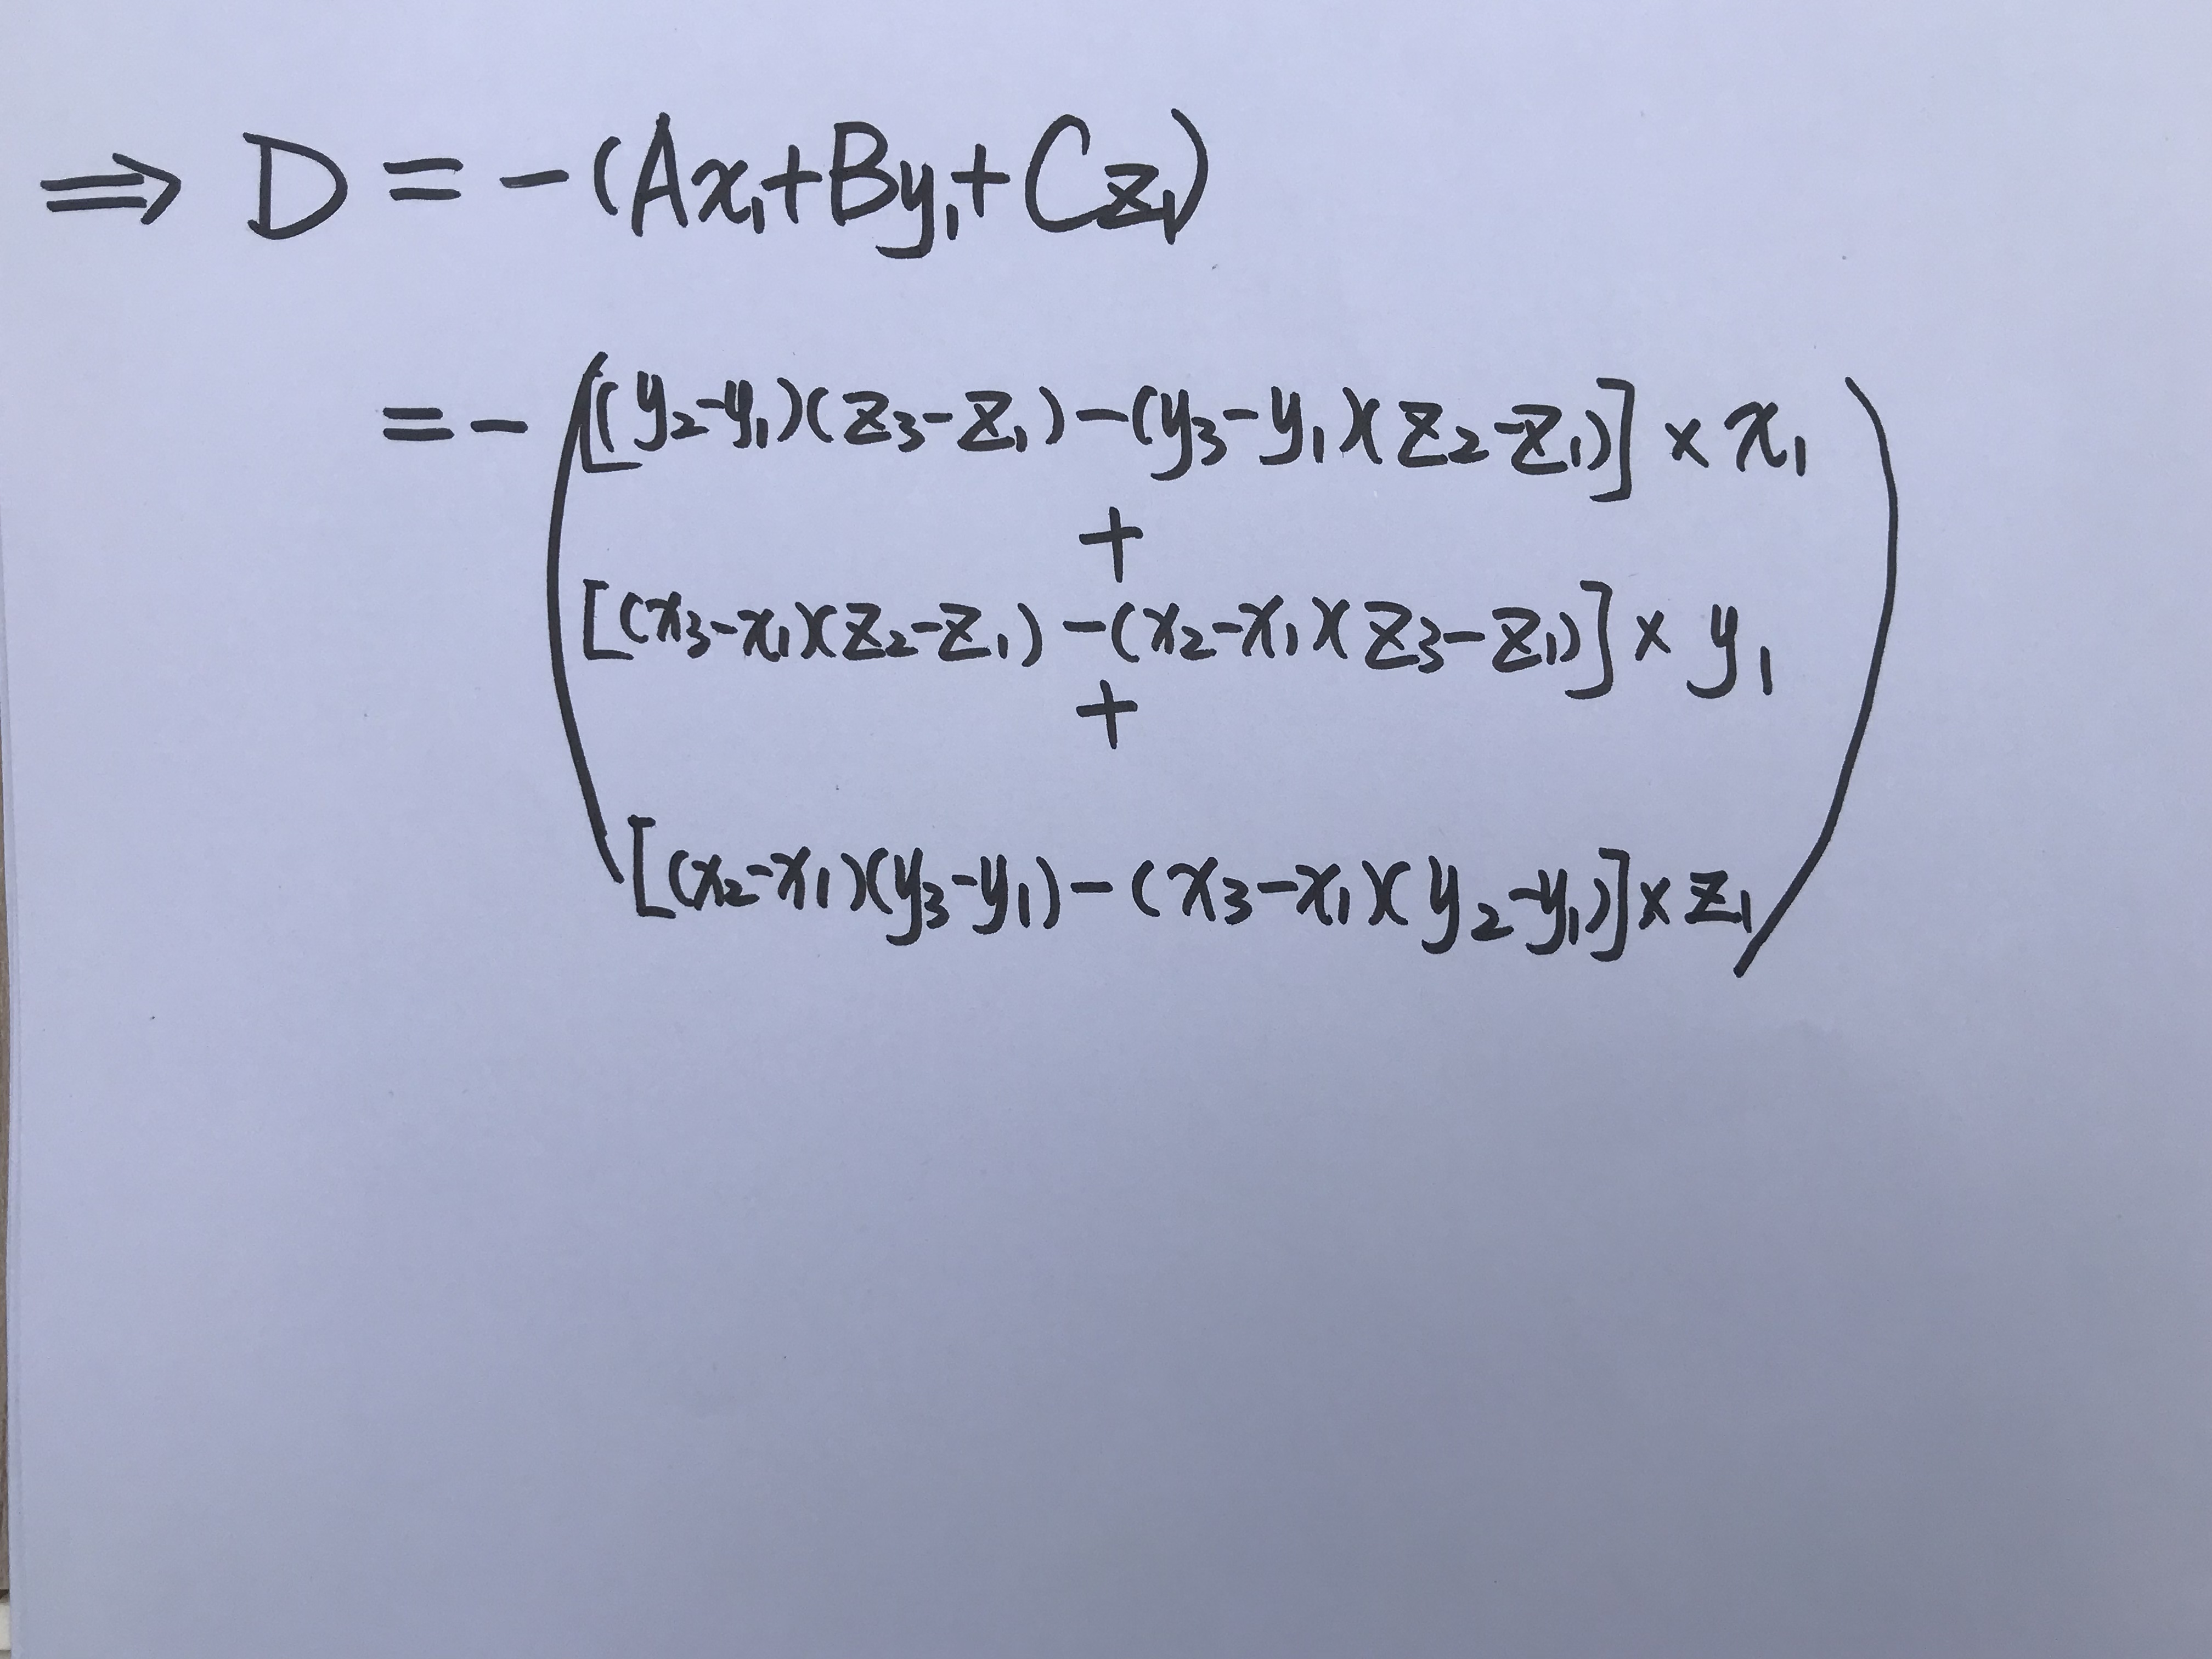 ⇒ D = -(Ax₁+By₁+Cz₁)
= - ( [(y₂-y₁)(z₃-z₁)-(y₃-y₁)(z₂-z₁)] × x₁
+
[(x₃-x₁)(z₂-z₁)-(x₂-x₁)(z₃-z₁)] × y₁
+
[(x₂-x₁)(y₃-y₁)-(x₃-x₁)(y₂-y₁)] × z₁ )